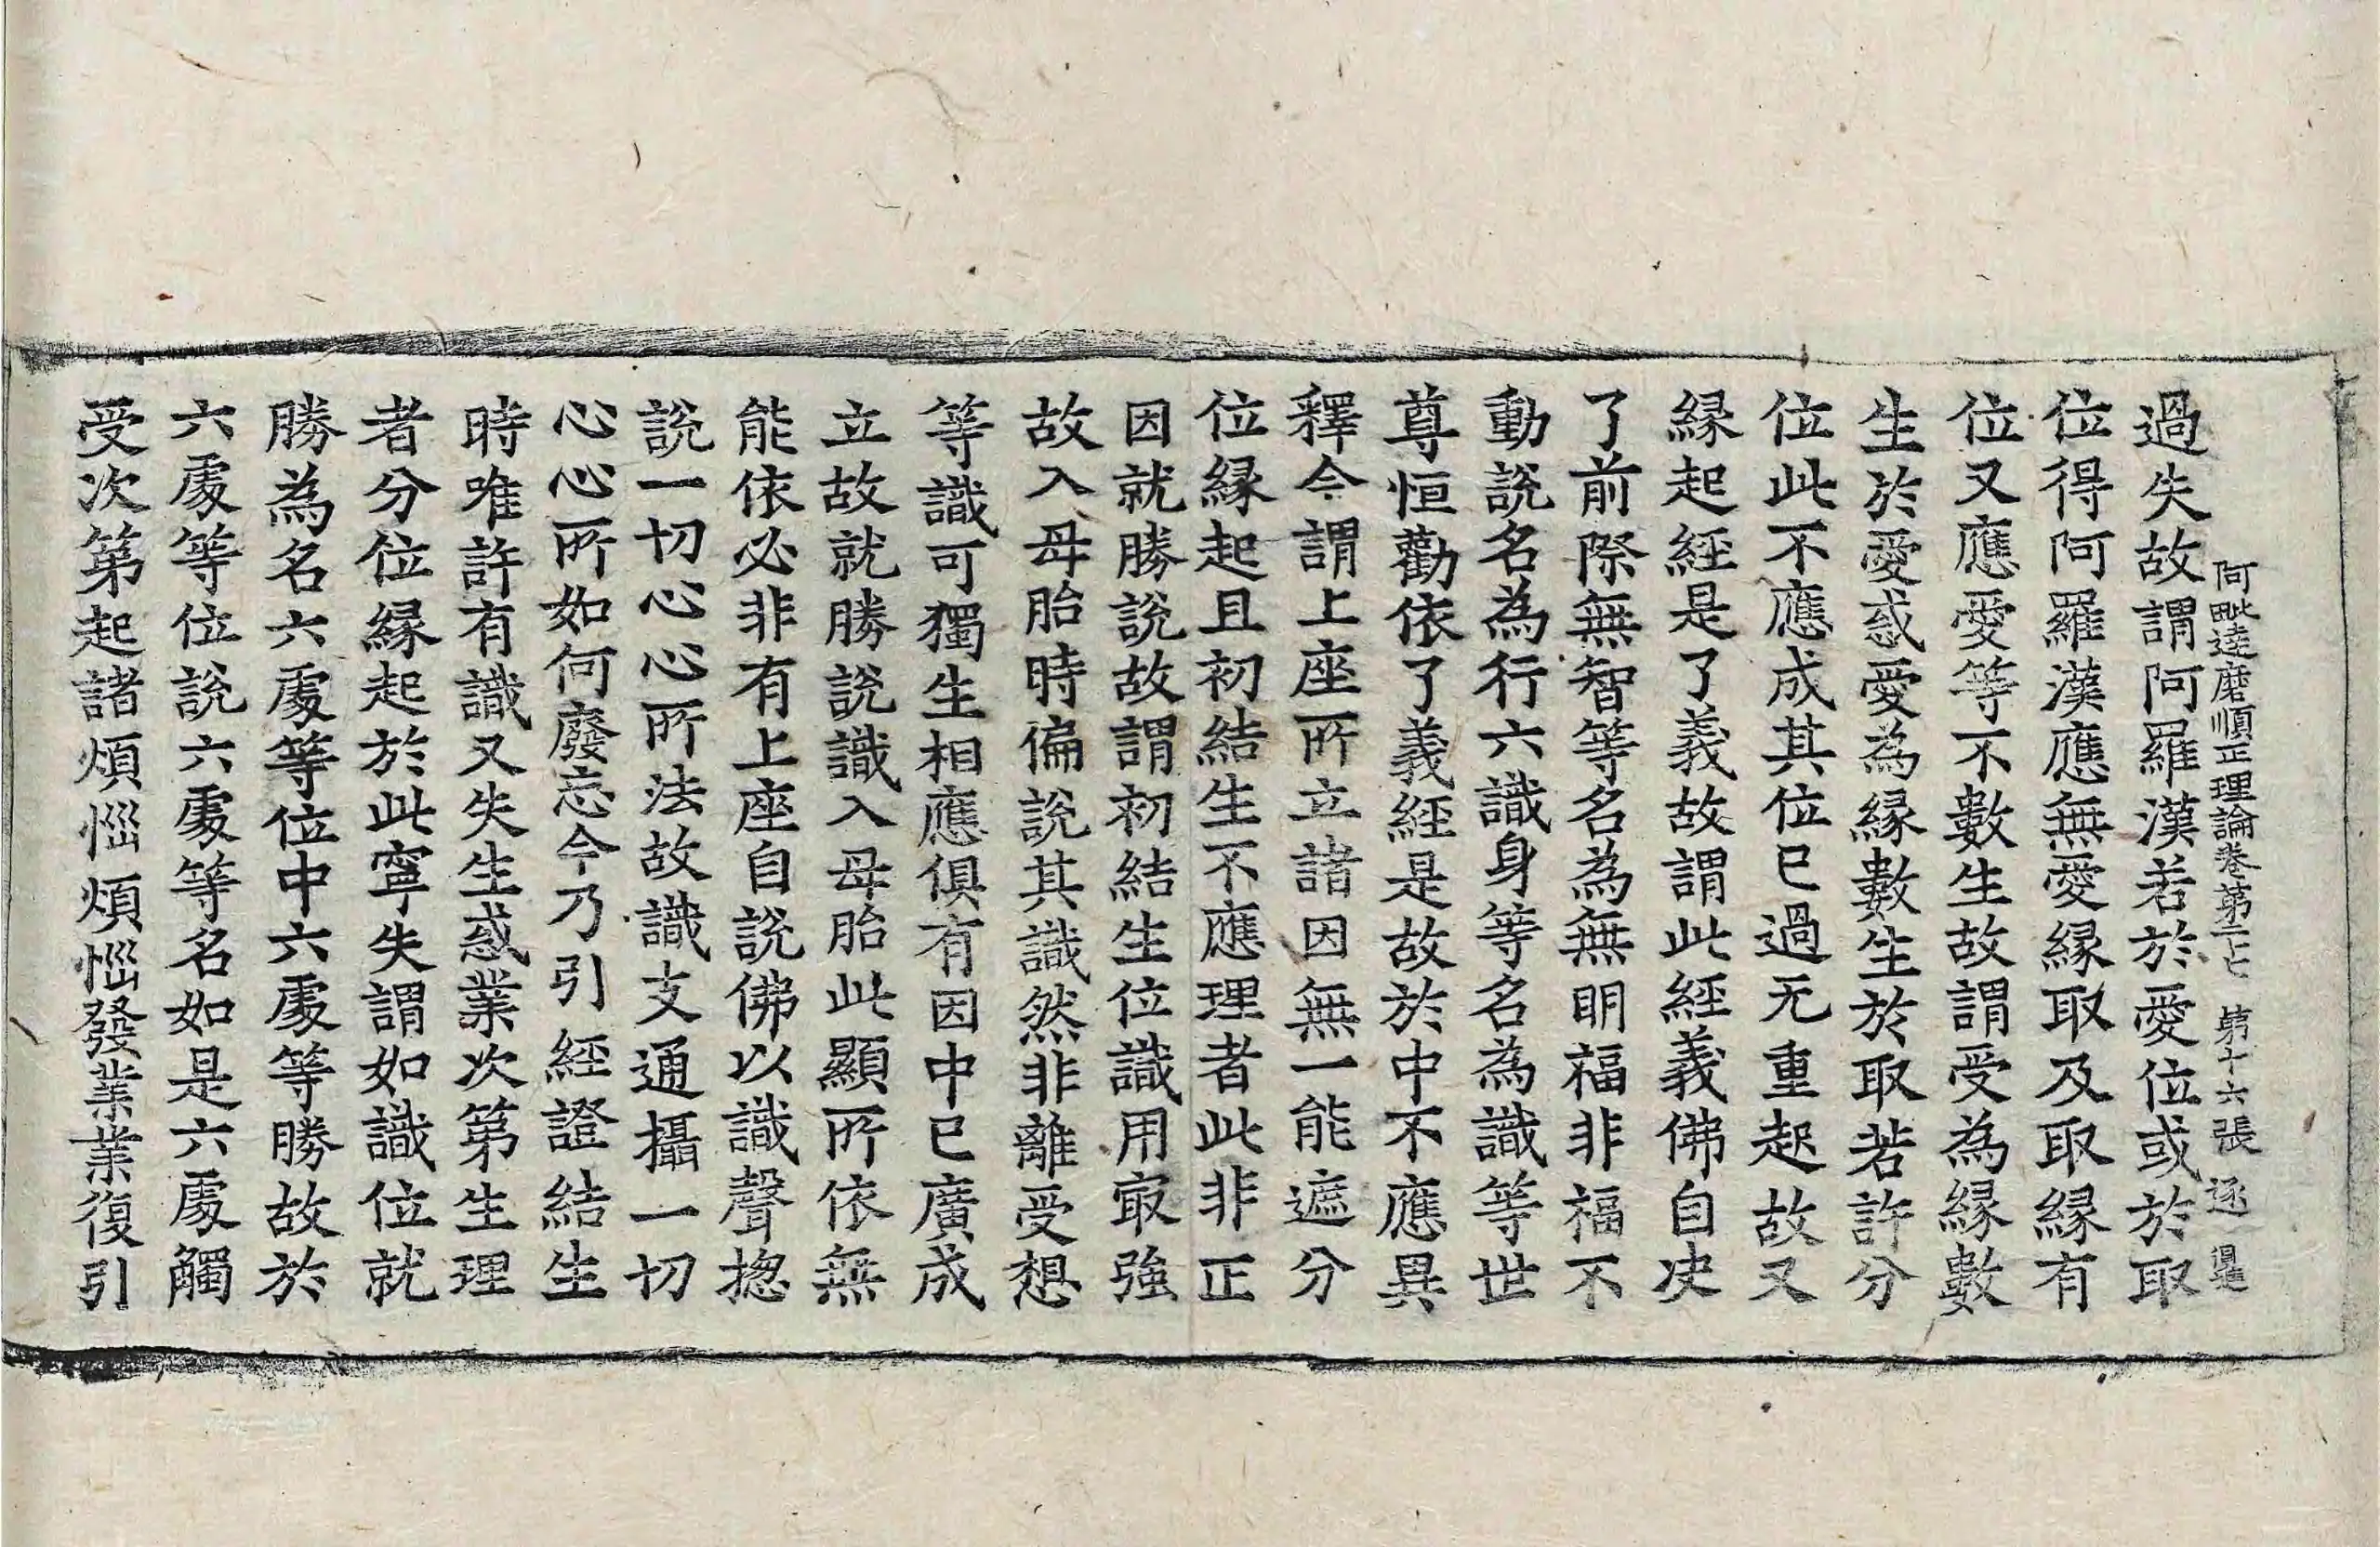 阿毗達磨順正理論卷第二七 第十六張 逐
過失故謂阿羅漢若於愛位或於取
位得阿羅漢應無愛緣取及取緣有
位又應愛等不數生故謂受為緣數
生於愛惑愛為緣數生於取若許分
位此不應成其位已過无重起故又
緣起經是了義故謂此經義佛自决
了前際無智等名為無明福非福不
動說名為行六識身等名為識等世
尊恒勸依了義經是故於中不應異
釋今謂上座所立諸因無一能遮分
位緣起且初結生不應理者此非正
因就勝說故謂初結生位識用㝡強
故入母胎時偏說其識然非離受想
等識可獨生相應俱有因中已廣成
立故就勝說識入母胎此顯所依無
能依必非有上座自說佛以識聲揔
說一切心心所法故識支通攝一切
心心所如何廢忘今乃引經證結生
時唯許有識又失生惑業次第生理
者分位緣起於此寧失謂如識位就
勝為名六處等位中六處等勝故於
六處等位說六處等名如是六處觸
受次第起諸煩惱煩惱發業業復引